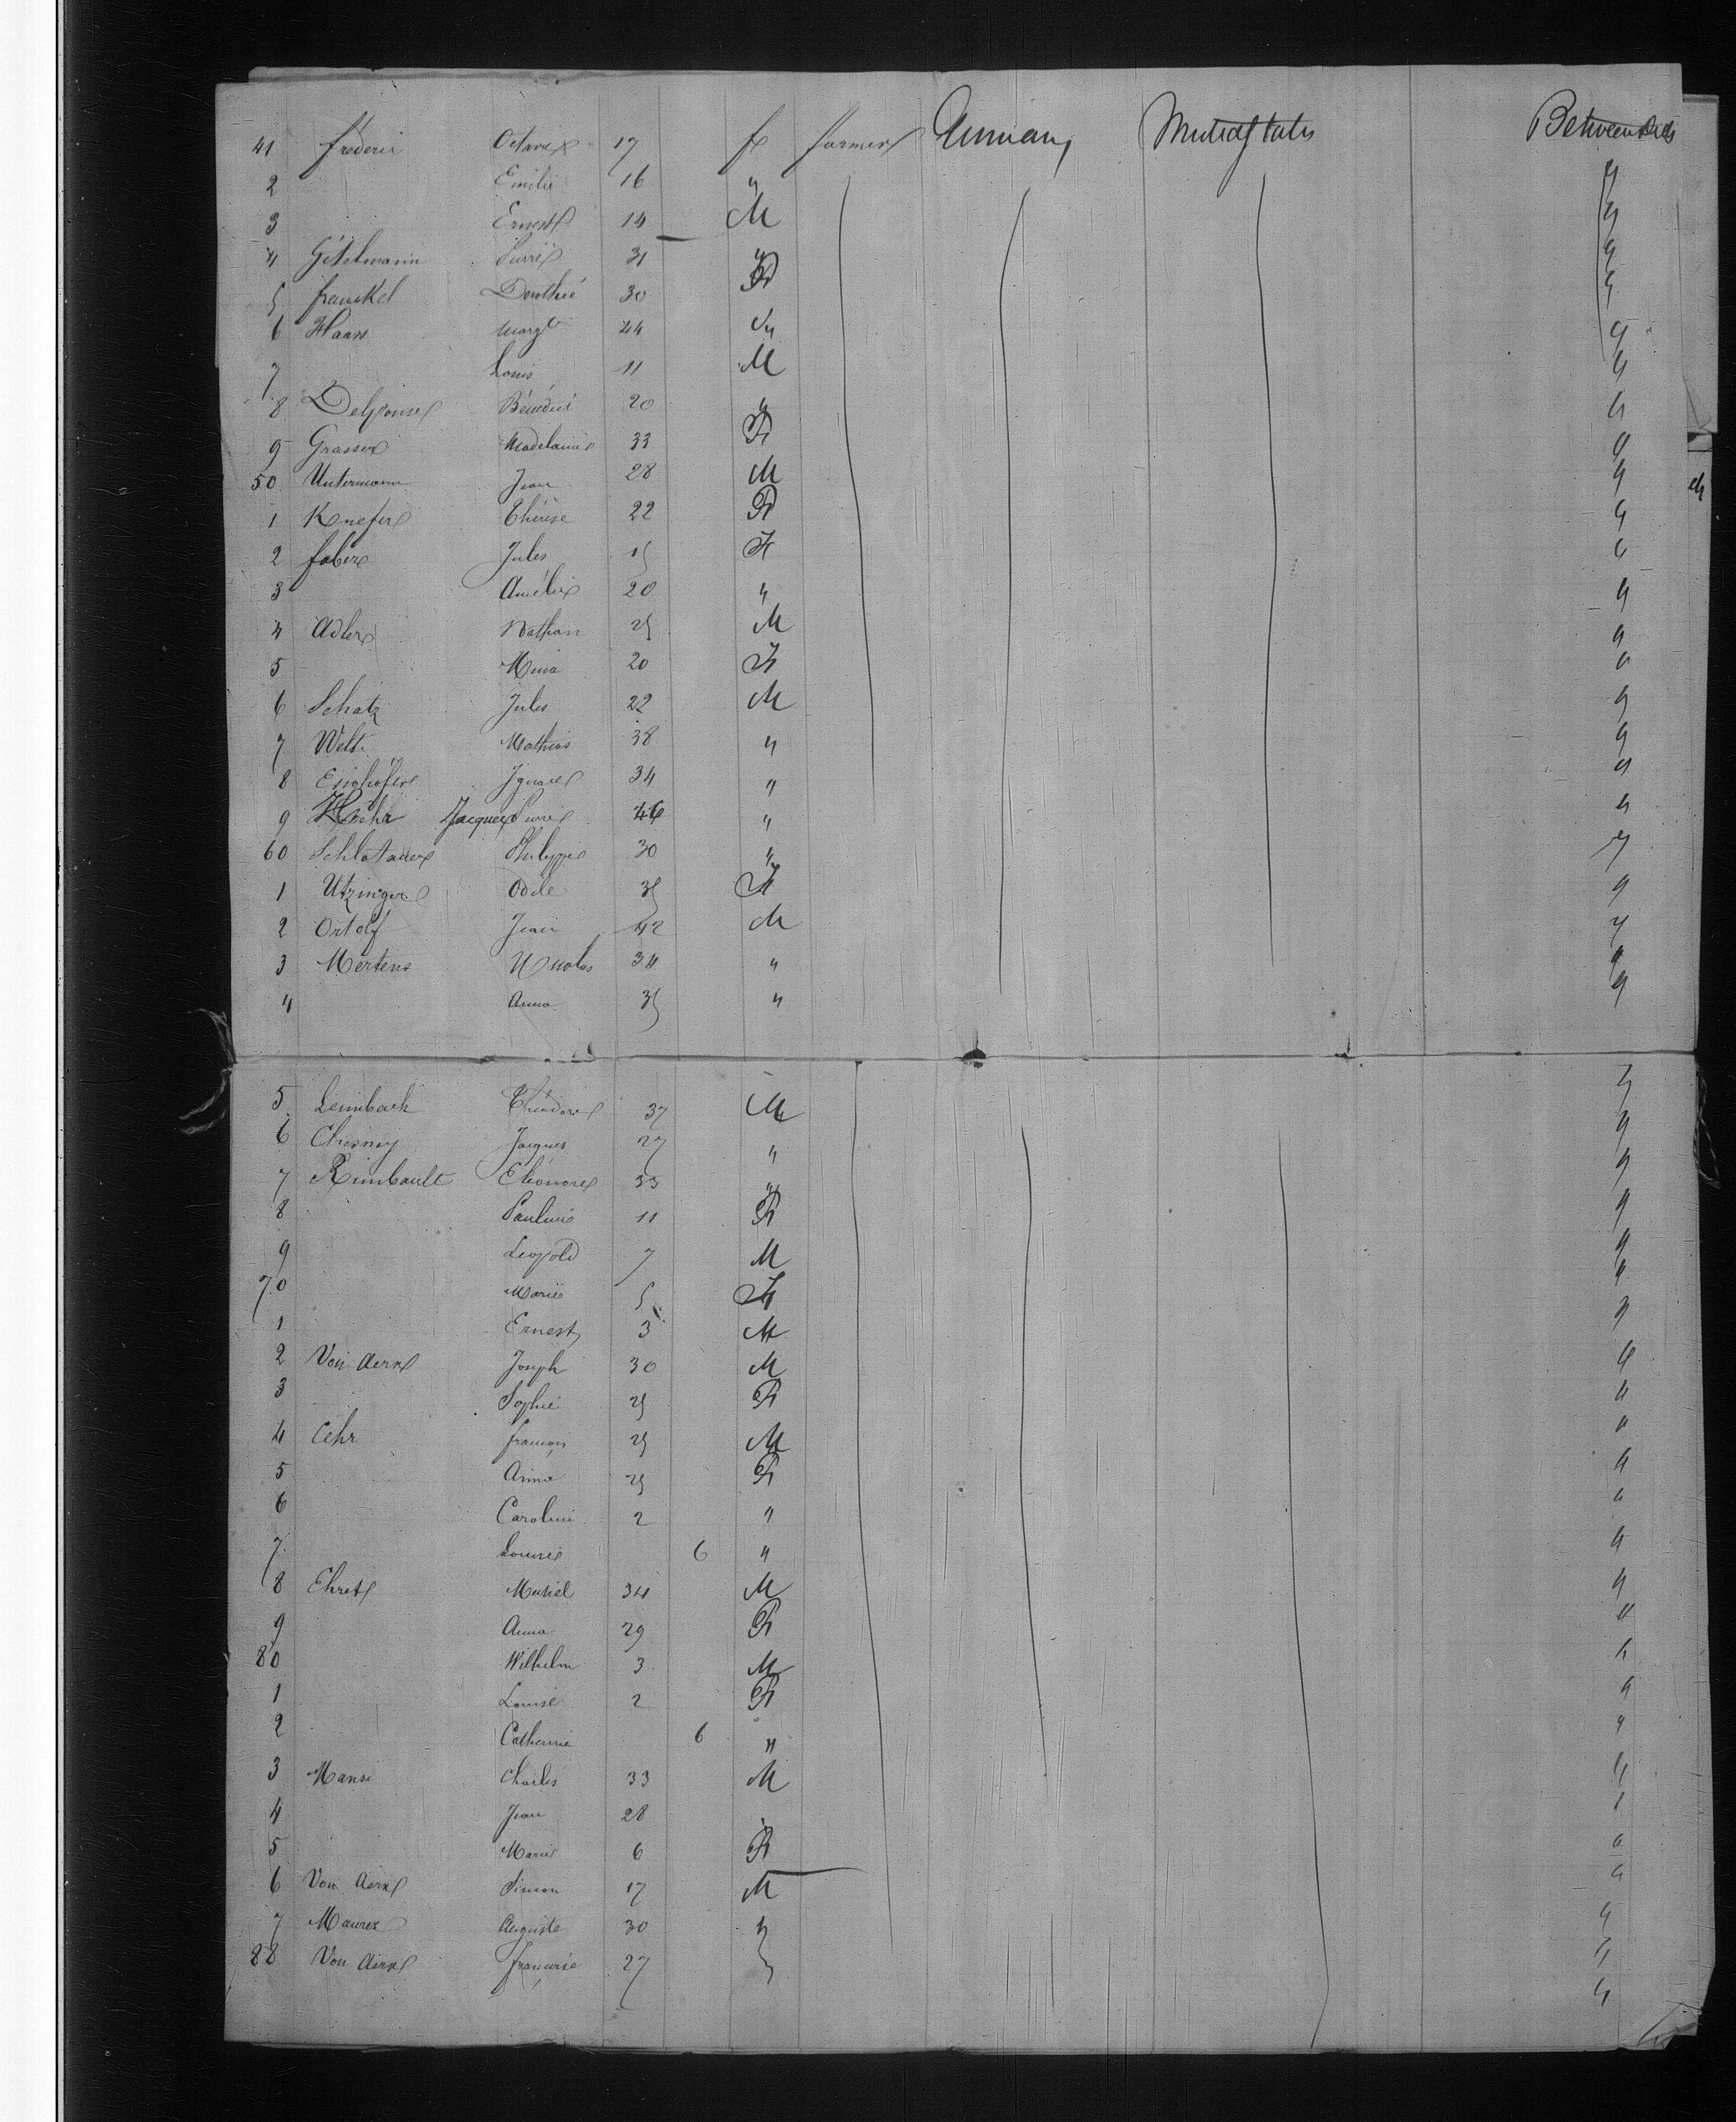 41 frederic Octave 17 f farmer Germany United States Between decks
2 Emilie 16 "
3 Ernest 14 M
4 Gitelmann Pierre 31 "
5 franckel Dorothée 30 F
6 Haas Margt 44 "
7 Louis 11 M
8 Delponse Bénédict 20 "
9 Grasser Madelaine 33 F
50 Untermann Jean 28 M
1 Knefer Thérèse 22 F
2 faber Jules 15 F
3 Amélie 20 "
4 Adler Nathan 25 M
5 Mina 20 F
6 Schatz Jules 22 M
7 Welti Mathias 38 "
8 Ignace 34 "
9 Jacques Pierre 46 "
60 Philippe 30 "
1 Utzinger Odile 35 F
2 Ortolf Jean 42 M
3 Mertens Nicolas 34 "
4 Anna 35 "
5 Leimbach Théodore 37 M
6 Chesney Jacques 27 "
7 Rimbault Eléonore 33 "
8 Pauline 11 F
9 Leopold 7 M
70 Marie 5 F
1 Ernest 3 M
2 Von Aerx Joseph 30 M
3 Sophie 25 F
4 Cehr françois 25 M
5 Anna 25 F
6 Caroline 2 "
7 Louise 6 "
8 Ehret Michel 34 M
9 Anna 29 F
80 Wilhelm 3 M
1 Louise 2 F
2 Catherine 6 "
3 Mansi Charles 33 M
4 Jean 28 "
5 Marie 6 F
6 Von Aerx Simon 17 M
7 Maurez Auguste 30 "
88 Von Aerx 27 "